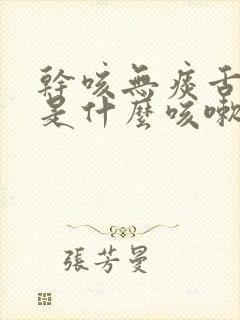 幹咳無痰舌
是什麼咳嗽
張芳曼